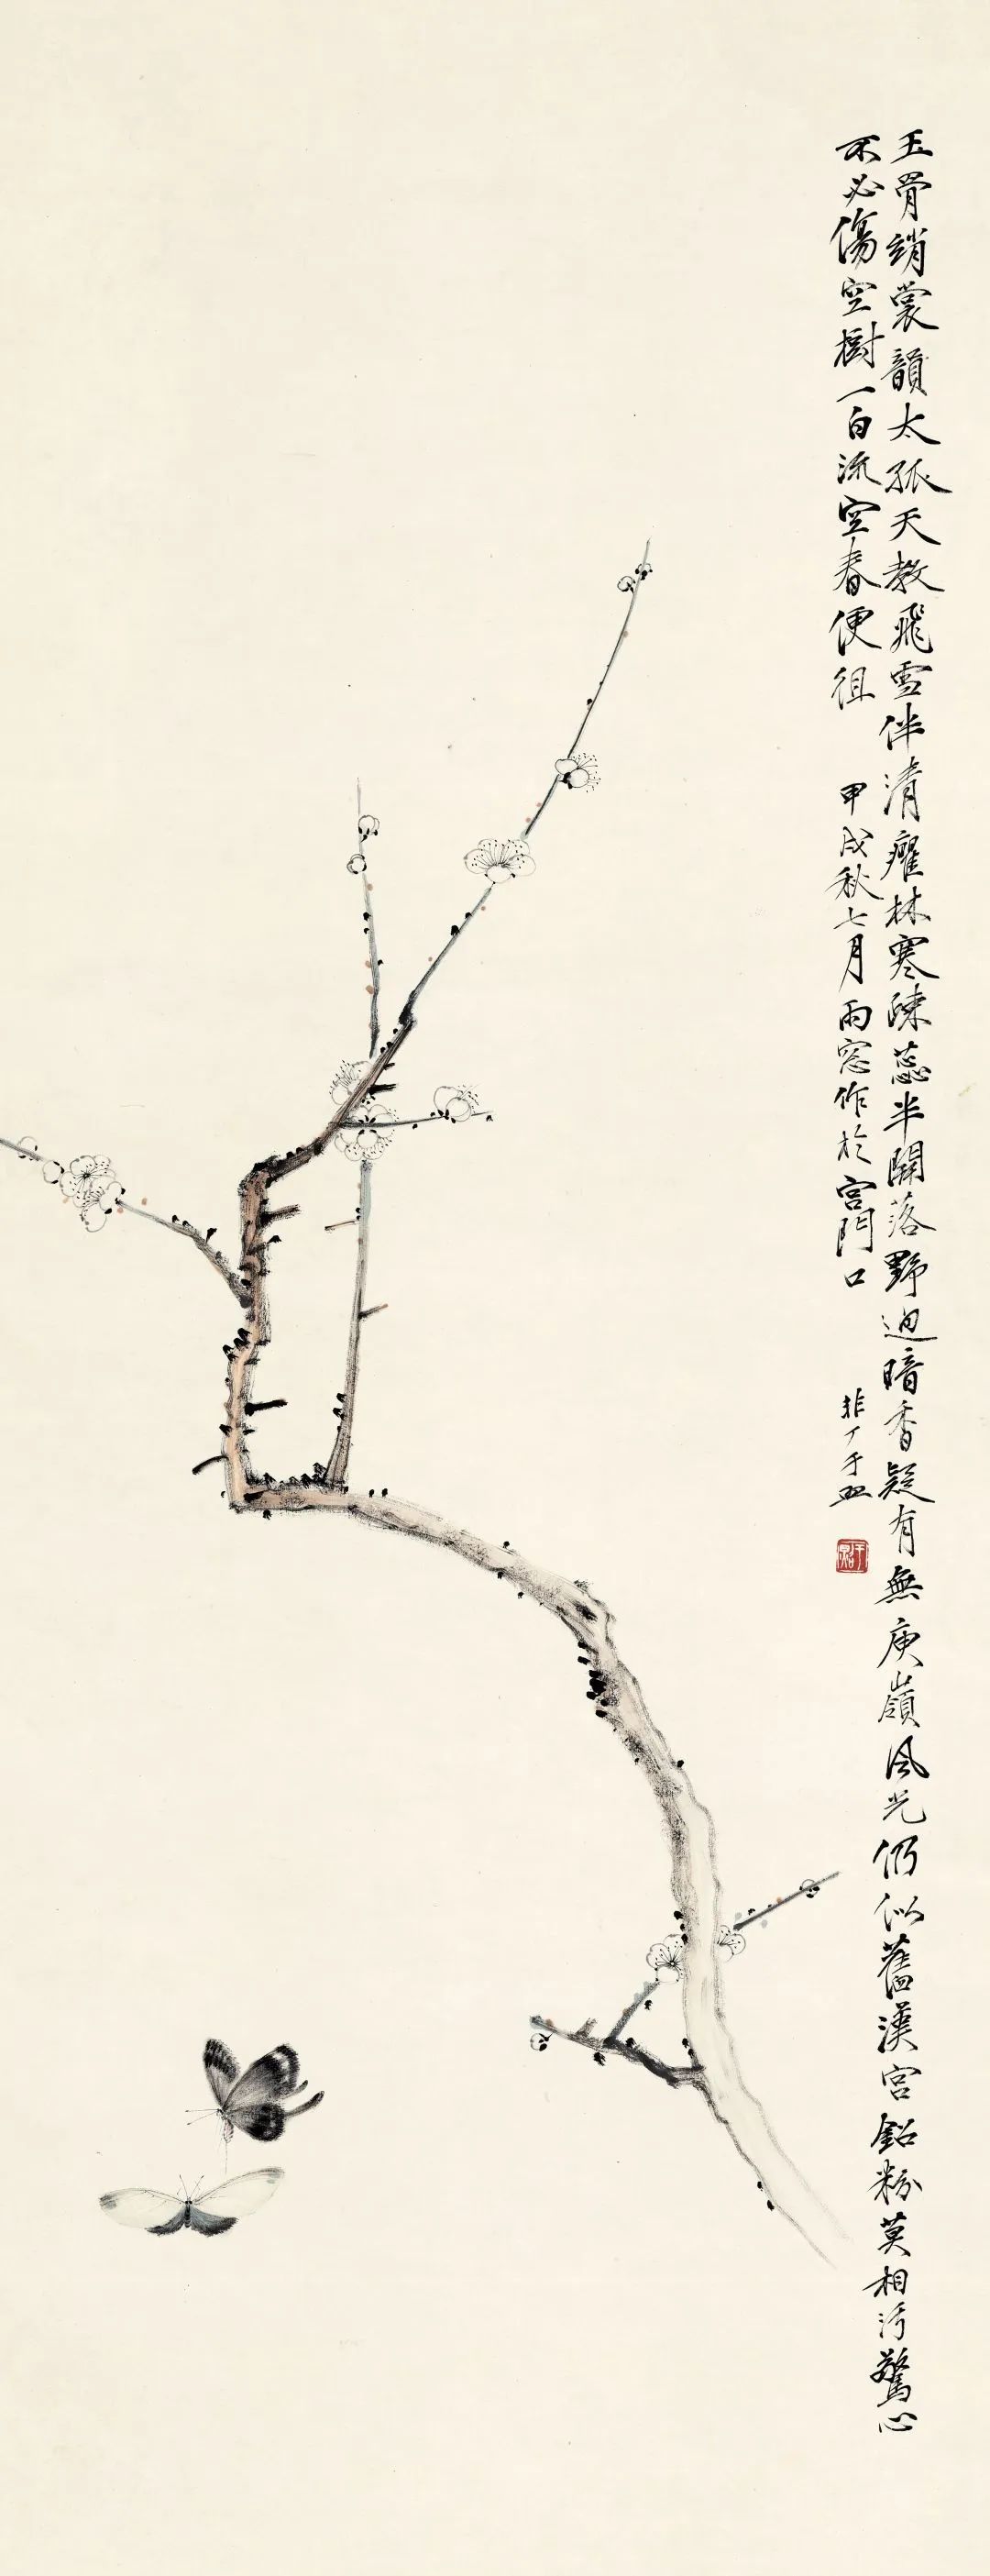 玉骨綃裳韻太孤天教飛雪伴清癯林寒疎蕊半開落野迥暗香疑有無庾嶺風光仍似舊漢宮鉛粉莫相污驚心
不必傷空樹一白流空春便徂
甲戌秋七月雨窓作於宮門口
非厂于照
于照